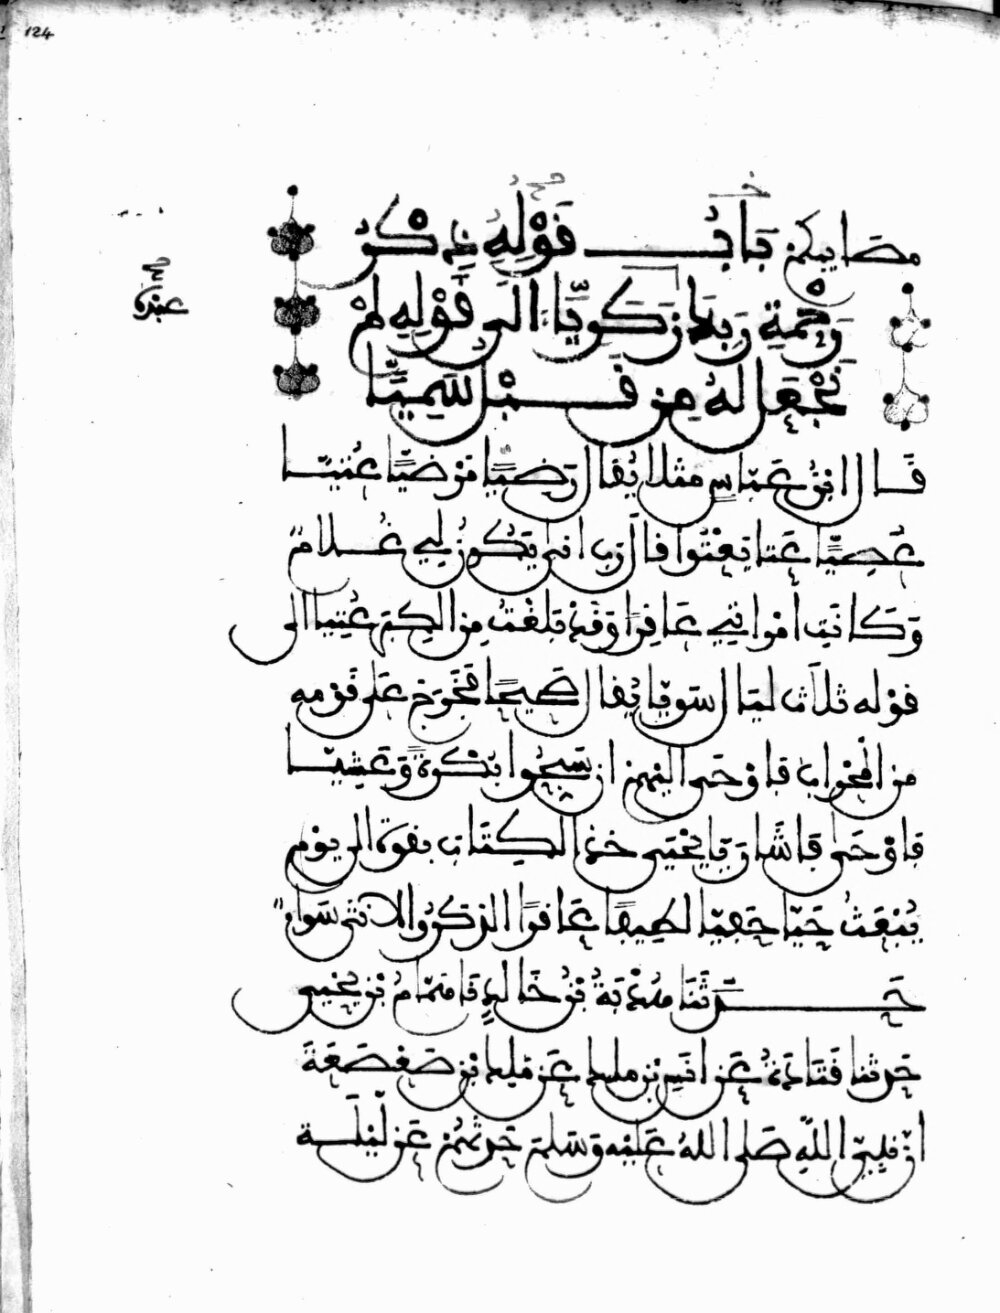 124
مصابيكم بَابُ قَوْلِهِ ذِكْرُ
رَحْمَةِ رَبِّكَ زَكَرِيَّاءَ الَى قَوْلِهِ لَمْ
نَجْعَل لَّهُ مِن قَبْلُ سَمِيًّا
قَالَ ابْنُ عَبَّاسٍ مثلا يُقَالُ رَضِيًّا مَرْضِيًّا عُتِيًّا
عَصِيًّا عَتَا يَعْتُوا قَالَ رَبِّ أنى يَكُونُ لِي غُلَامٌ
وَكَانَتِ امْرَاتِي عَاقِرًا وَقَدْ بَلَغْتُ مِنَ الْكِبَرِ عُتِيًّا الى
قوْله ثلَاثَ لَيَالٍ سَوِيًّا يُقَالُ صَحِيحًا فَخَرَجَ عَلَى قَوْمِهِ
من الْمِحْرَابِ فَأَوْحَى إِلَيْهِمْ أن سَبِّحُوا بُكْرَةً وَعَشِيًّا
فَأَوْحَى فَأَشَارَ يَا يَحْيَى خُذِ الْكِتَابَ بِقُوَّةٍ الى يَوْمَ
يُبْعَثُ حَيًّا حَفِيًّا لَطِيفًا عَاقِرًا الذَّكَرُ وَالانثى سَوَاءٌ
حَدَّثَنَا هُدْبَةُ بْنُ خَالِدٍ نَا هَمَّامُ بْن يَحْيَى
حَدثنا قَتَادَةُ عَن أَنَسِ بْنِ ملك عَن مَلِك بْن صَعْصَعَةَ
أنّ نَبِيَّ اللّهِ صَلى اللهُ عَلَيْهِ وَسَلَّمَ حَدَّثَهُمْ عَن لَيْلَةِ